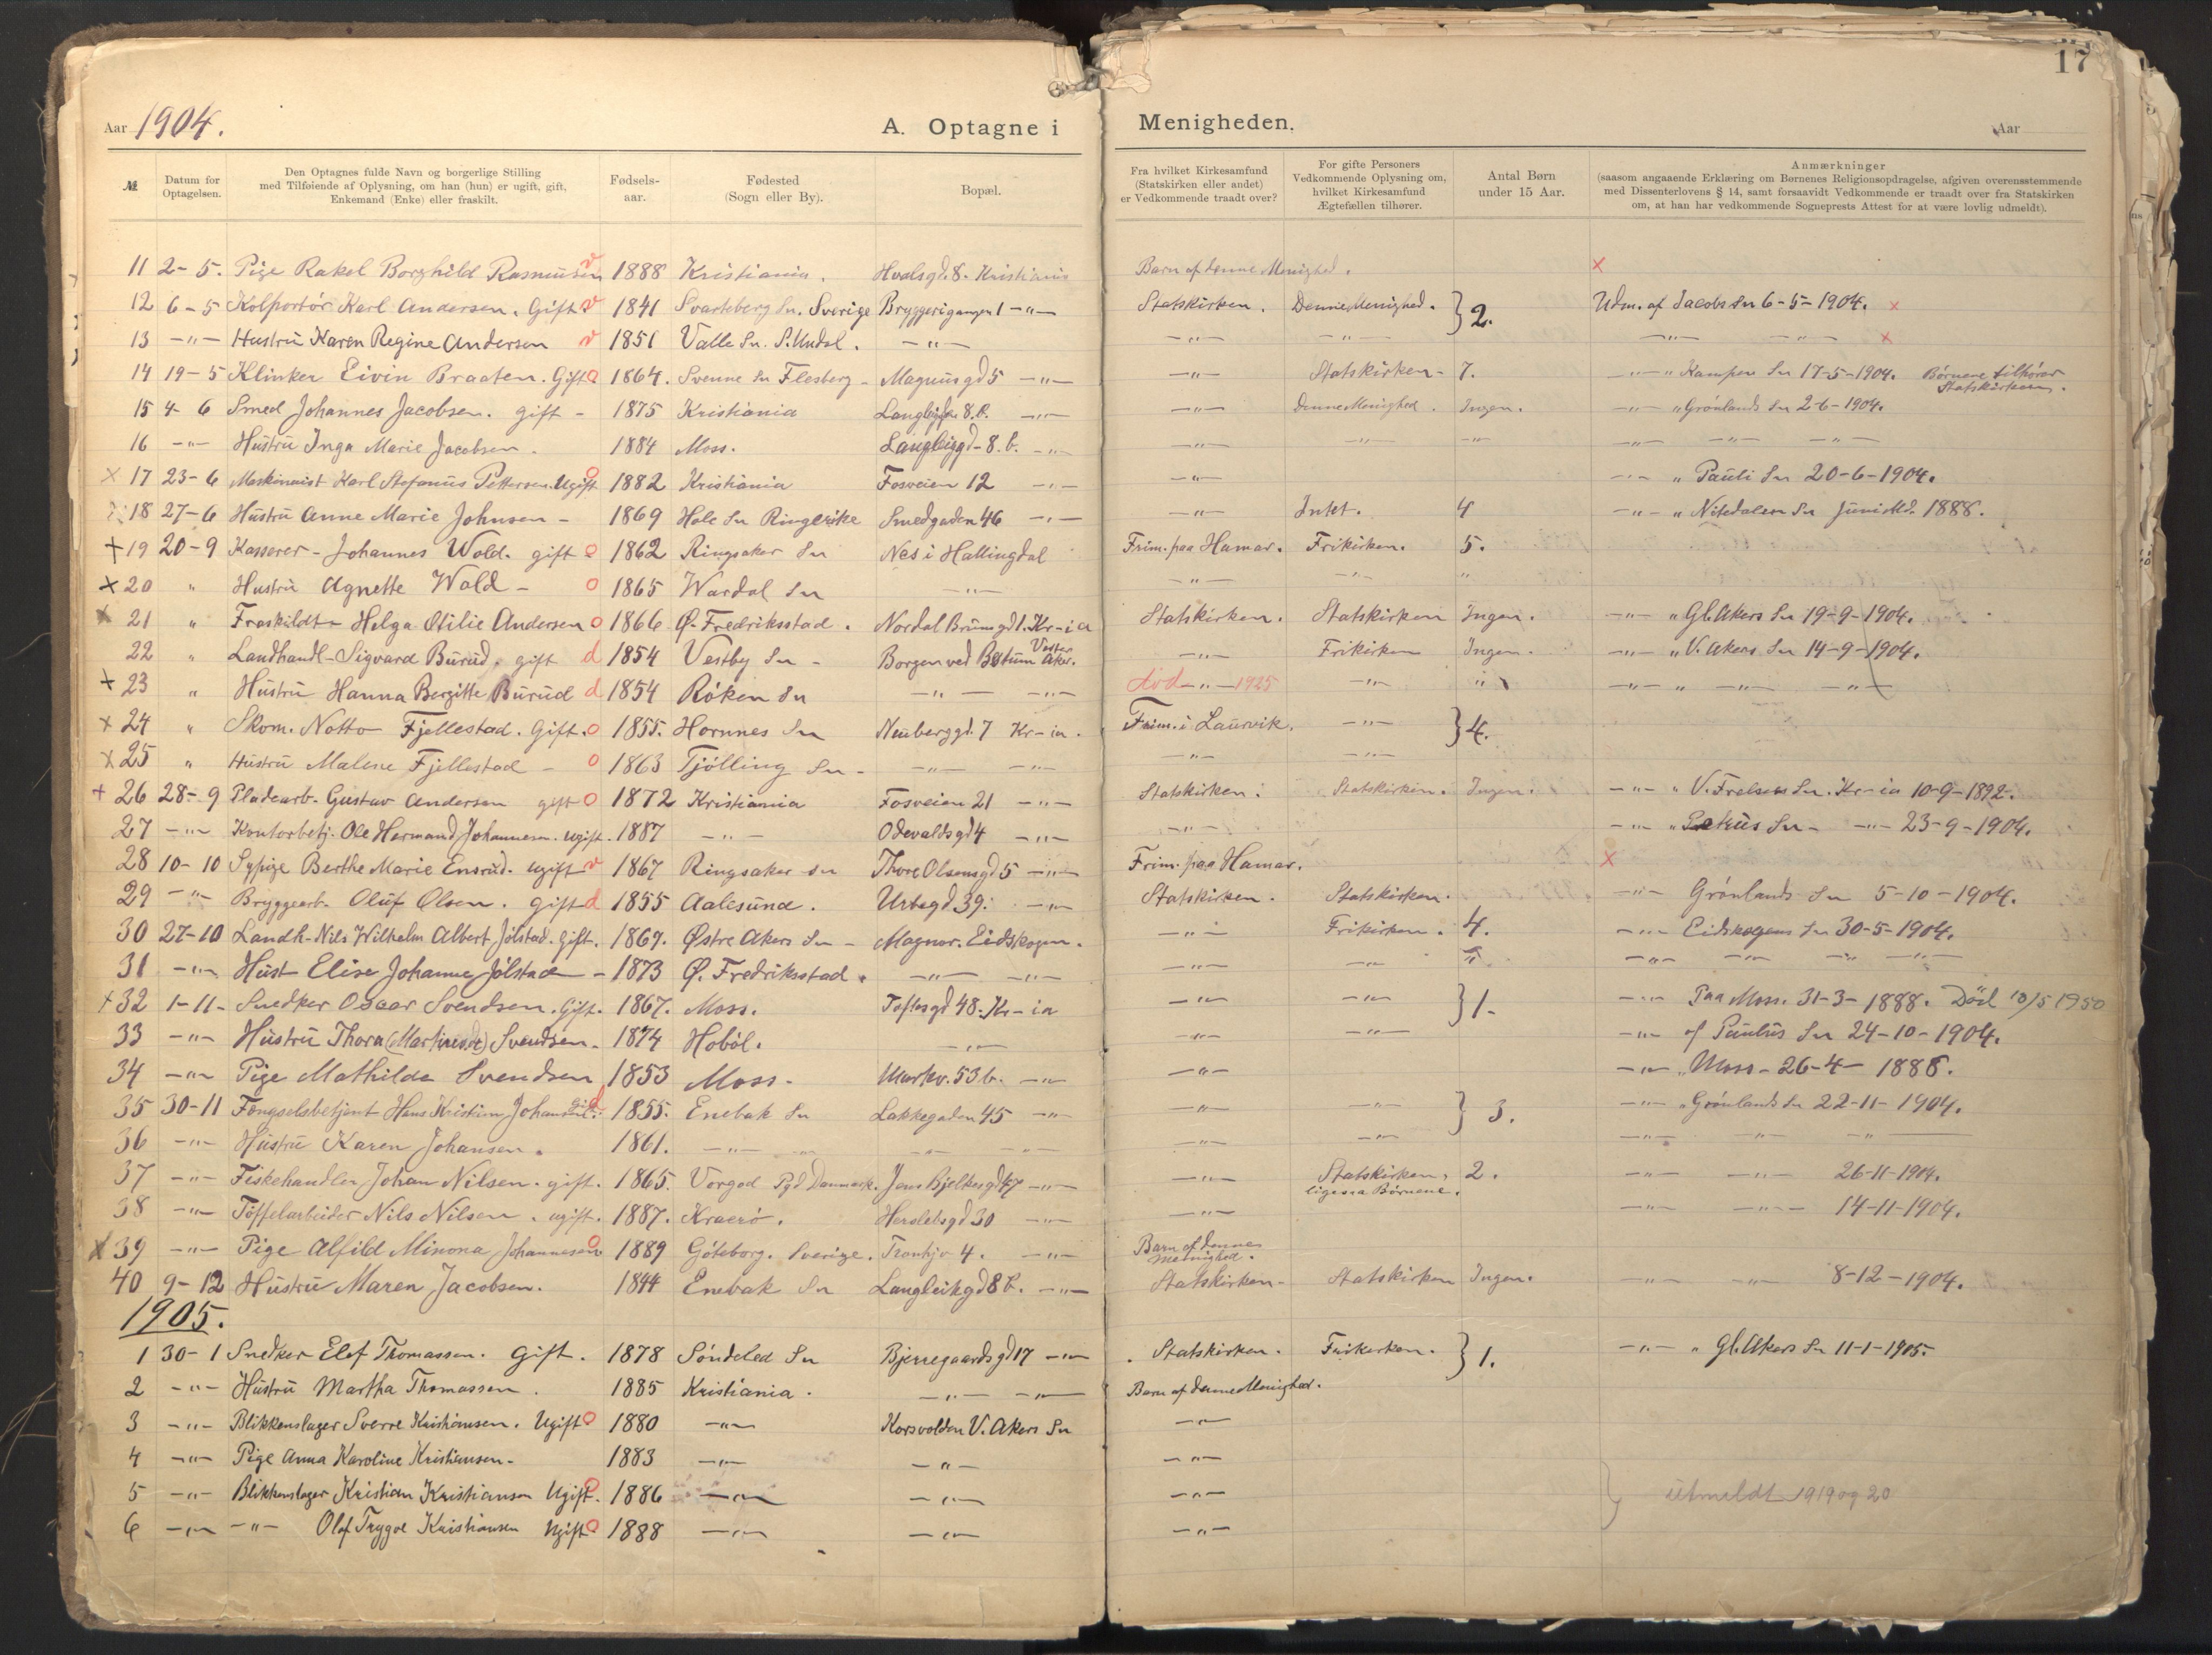 17
Aar 1904.
A. Optagne i Menigheden.
Aar
№
Datum for Optagelsen.
Den Optagnes fulde Navn og borgerlige Stilling med Tilføiende af Oplysning, om han (hun) er ugift, gift, Enkemand (Enke) eller fraskilt.
Fødsels-aar.
Fødested (Sogn eller By).
Bopæl.
Fra hvilket Kirkesamfund (Statskirken eller andet) er Vedkommende traadt over?
For gifte Personers Vedkommende Oplysning om, hvilket Kirkesamfund Ægtefællen tilhører.
Antal Børn under 15 Aar.
Anmærkninger (saasom angaaende Erklæring om Børnenes Religionsopdragelse, afgiven overensstemmende med Dissenterlovens § 14, samt forsaavidt Vedkommende er traadt over fra Statskirken om, at han har vedkommende Sogneprests Attest for at være lovlig udmeldt).
11 2-5. Pige Rakel Borghild Rasmusen v 1888 Kristiania. Hvalsgd. 8. Kristiania Barn af denne Menighed. x
12 6-5 Kolportör Karl Andersen. Gift v 1841 Svarteborg Sn. Sverige Bryggerigangen 1 -"- Statskirken. Denne Menighed. } 2. Udm. af Jacobs Sn 6-5-1904. x
13 -"- Hustrü Karen Regine Andersen v 1851 Valle Sn. S. Undal. -"- -"- -"- -"- -"- x
14 19-5 Klinker Eivin Braaten. Gift o 1864. Svenne Sn Flesberg - Magnüsgd 5 -"- -"- Statskirken - 7. -"- " Kampen Sn 17-5-1904. Børnene tilhörer Statskirken.
15 4-6 Smed Johannes Jacobsen. gift - 1875 Kristiania 8. b. -"- -"- Denne Menighed. Ingen. -"- " Grönlands Sn 2-6-1904.
16 -"- Hüstrü Inga Marie Jacobsen. 1884 Moss. 8. b. -"- -"- -"- -"- -"- -"- -"-
x 17 23-6 Maskinist Karl Stefanüs Pettersen. Ugift o 1882 Kristiania Fosveien 12 -"- -"- -"- " Pauli Sn 20-6-1904.
18 27-6 Hüstrü Anne Marie Johnsen - 1869 Hole Sn Ringerike Smedgaden 46 -"- -"- Intet. 4 -"- " Nitedalen Sn Juni Md. 1888.
+ 19 20-9 Kasserer - Johannes Wold. gift o 1862 Ringsaker Sn Nes i Hallingdal Frim. paa Hamar. Frikirken. 5.
x 20 " Hustrü Agnette Wold - o 1865 Wardal Sn -"- -"- -"- "
x 21 " Fraskildt - Helga Otilie Andersen o 1866 Ø. Fredriksstad. Nordal Brüns gd 1. Kr-ia Statskirken. Statskirken Ingen. -"- " Gl. Akers Sn 19-9-1904.
22 " Landhandl - Sigvard Bürüd. gift d 1854 Vestby Sn - Borgen ved Bestum Vester Aker. -"- Frikirken Ingen. -"- " V. Akers Sn 14-9-1904.
+ 23 " Hüstrü Hanna Bergitte Bürüd d 1854 Röken Sn -"- -"- död -"- 1925 -"- " -"- " -"- -"-
x 24 " Skom. Notto Fjellestad. Gift. o 1855. Hornnes Sn Neuberggd. 7 Kr-ia. Frim. i Laurvik. -"- } 4.
x 25 " Hüstrü Malene Fjellestad - o 1863 Tjölling Sn - -"- -"- -"- -"-
+ 26 28-9 Pladearb. Gustav Andersen gift o 1872 Kristiania Fosveien 21 -"- Statskirken. Statskirken. Ingen. -"- " V. Frelsers Sn. Kr-ia 10-9-1892.
27 -"- Kontorbetj. Ole Hermand Johannesn. ugift. 1887 -"- Odevaldsgd 4 -"- -"- -"- " Petrüs Sn - -"- 23-9-1904.
28 10-10 Sypige Berthe Marie Ensrüd. ugift v 1867 Ringsaker Sn Thore Olsensgd 5 -"- Frim. paa Hamar. x
29 -"- Bryggearb. Olüf Olsen. gift d 1855 Aalesünd. Urtegd 39. -"- Statskirken. Statskirken. -"- Grönlands Sn 5-10-1904.
30 27-10 Landh. Nils Wilhelm Albert Jölstad. gift. 1867. Østre Akers Sn - Magnor. Eidskogen. -"- Frikirken. 4. -"- Eidskogens Sn 30-5-1904.
31 -"- Hüst Elise Johanne Jölstad - 1873 Ø. Fredriksstad. -"- -"- -"- -"- " -"- -"- -"- -"-
+ 32 1-11 - Snedker Oscar Svendsen. Gift. 1867. Moss. Toftesgd 48. Kr-ia -"- -"- } 1. -"- Paa Moss. 31-3-1888. Död 10/5 1950
33 -"- Hüstrü Thora Svendsen. 1874 Hoböl. -"- -"- -"- -"- af Paulüs Sn 24-10-1904.
34 -"- Pige Mathilde Svendsen 1853 Moss. Markv. 53 b. -"- -"- -"- " Moss - 26-4-1888.
35 30-11 Fængselsbetjent Hans Kristian Johansen gift. d 1855. Enebak Sn Lakkegaden 45 -"- -"- -"- } 3. -"- " Grönlands Sn 22-11-1904.
36 -"- Hüstrü Karen Johansen. 1861. -"- -"- -"- -"- -"- -"- -"- -"- -"-
37 -"- Fiskehandler Johan Nilsen. gift. 1865. Vorgod Pgd Danmark. Jens Bjelkesgd 47 -"- -"- Statskirken, ligesaa Børnene. 2. -"- -"- 26-11-1904.
38 -"- Töffelarbeider Nils Nilsen. ugift. 1887. Kragerö. Herslebsgd 30 -"- -"- -"- -"- 14-11-1904.
x 39 -"- Pige Alfild Minona Johannesen o 1889 Göteborg. Sverige. Tronhjv 4. -"- Barn af denne Menighed.
40 9-12 Hüstrü Maren Jacobsen. 1844 Enebak Sn Langleikgd 8 b. -"- Statskirken - Statskirken Ingen. -"- -"- 8-12-1904.
1905.
1 30-1 Snedker Elef Thomassen. Gift. 1878 Söndeled Sn Bjerregaardsgd 17 -"- Statskirken. Frikerken. } 1. -"- " Gl. Akers Sn 11-1-1905.
2 -"- Hüstrü Martha Thomassen. 1885 Kristiania. -"- -"- Barn af denne Menighed.
3 -"- Blikkenslager Sverre Kristiansen. Ugift o 1880 -"- Korsvolden V. Akers Sn -"-
4 -"- Pige Anna Karoline Kristiansen - 1883 -"- -"- -"-
5 -"- Blikkenslager Kristian Kristiansen Ugift. o 1886 -"- -"- -"- } utmeldt 1919 og 20
6 -"- -"- Olaf Trygve Kristiansen Ugift o 1888 -"- -"- -"-